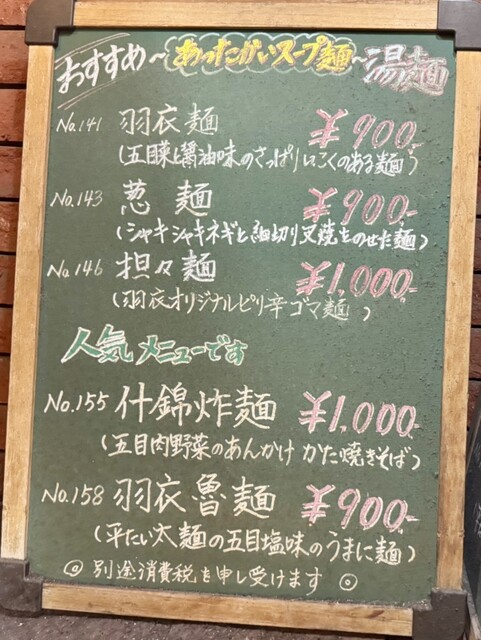 おすすめ ~あったかいスープ麺~ 湯麺
No.141 羽衣麺 ¥900-
(五目菜と醤油味のさっぱりしこくのある麺)
No.143 葱麺 ¥900-
(シャキシャキネギと細切り叉焼をのせた麺)
No.146 担々麺 ¥1,000-
(羽衣オリジナルピリ辛ゴマ麺)
人気メニューです
No.155 什錦炸麺 ¥1,000-
(五目肉野菜のあんかけ かた焼きそば)
No.158 羽衣魯麺 ¥900-
(平たい太麺の五目塩味のうまに麺)
◎ 別途消費税を申し受けます ◎